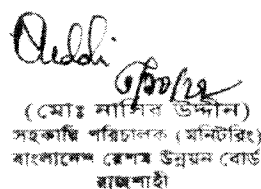 (মোঃ নাসির উদ্দীন)
সহকারি পরিচালক (মনিটরিং)
বাংলাদেশ রেশম উন্নয়ন বোর্ড
রাজশাহী